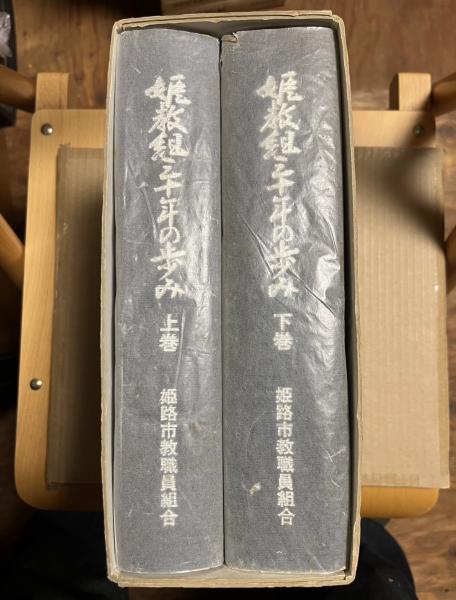 姫教組三十年の歩み
上巻
姫路市教職員組合
姫教組三十年の歩み
下巻
姫路市教職員組合